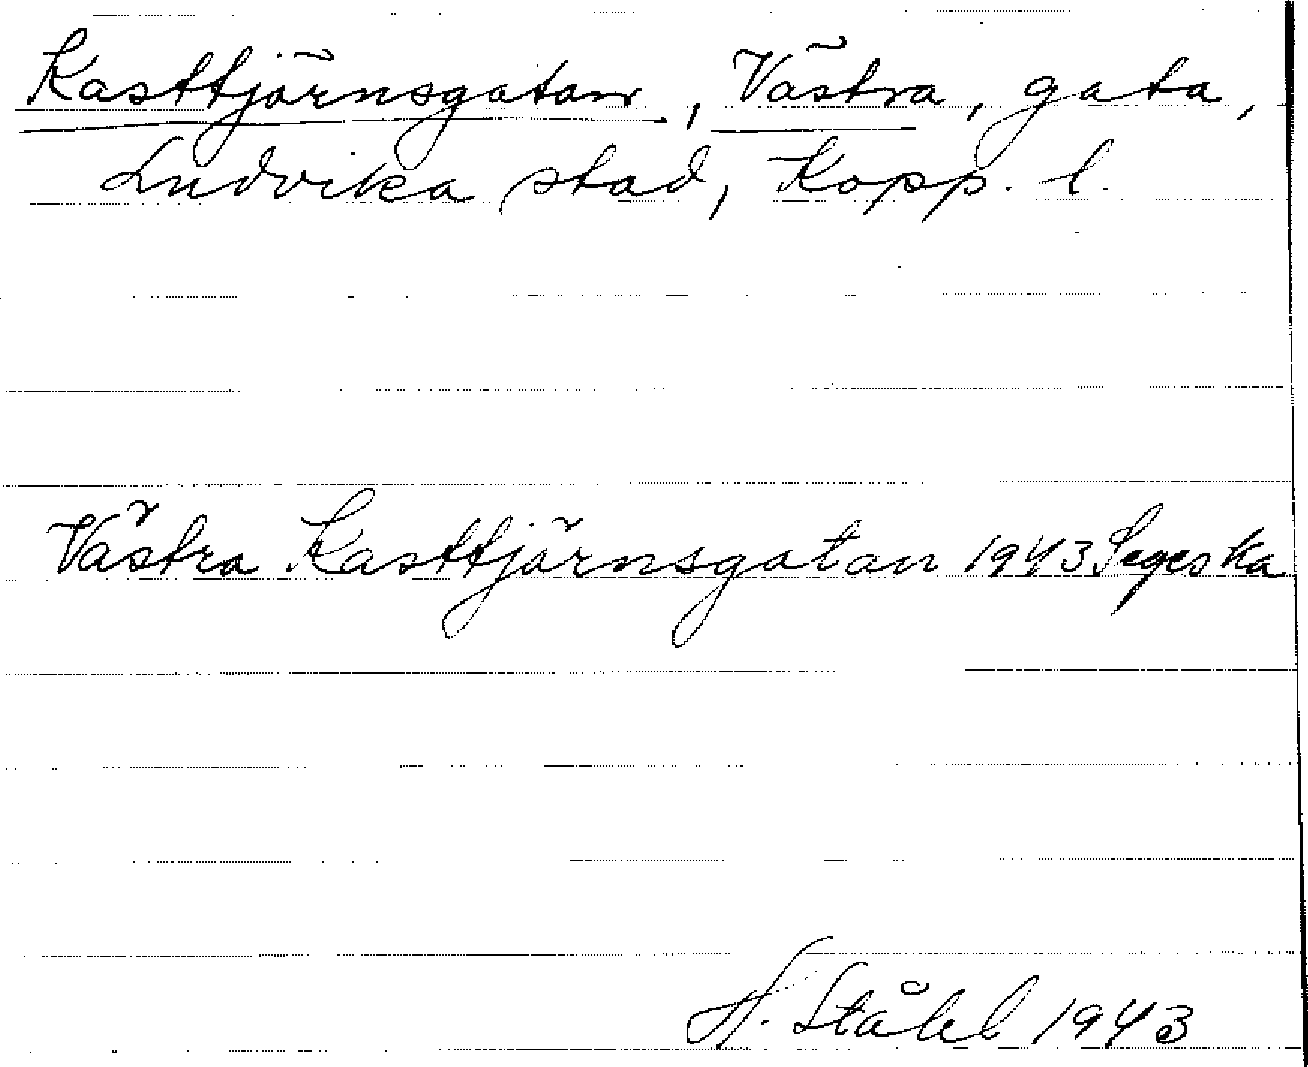 Kasttjärnsgatan, Västra, gata,
Ludvika stad, Kopp. l.
Västra Kasttjärnsgatan 1943 Segeska
H. Ståhl 1943